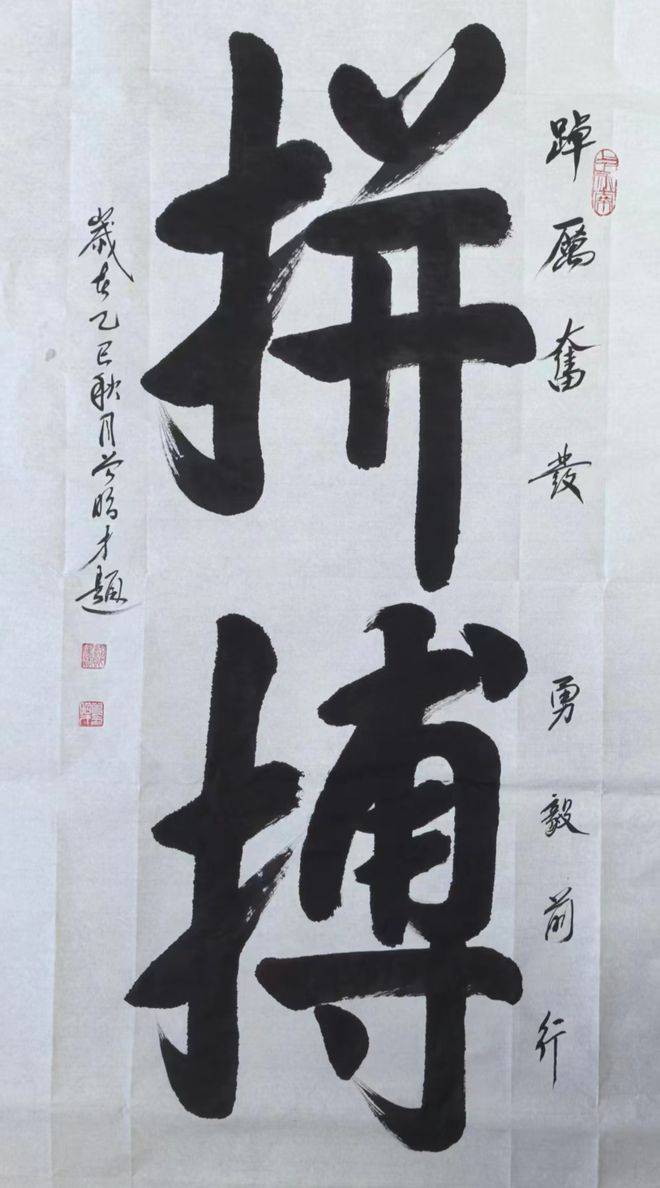 踔厲奮發 勇毅前行
拼搏
歲在乙巳秋月 才題